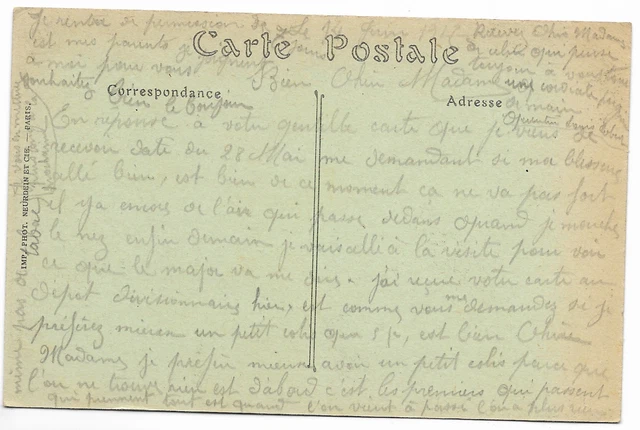 Je rentre de permission de le 14 Juin 1917
Recevez Chère Madame
est mes parents se joignent
de celui qui pense
a moi pour vous
toujour a vous
souhaitez
Bien Chère Madame une cordiale
Bien le bonjour
de main
Carte Postale
Correspondance
Adresse
En reponse à votre gentille carte que je viens de
recevoir date du 28 Mai me demandant si ma blessure
allé bien, est bien de ce moment ça ne va pas fort
il y a encore de l'air qui passe dedans quand je mouche
le nez enfin demain je vais allé à la visite pour voir
ce que le major va me dire. j'ai reçue votre carte au
Depot divisionnaire hier, est comme vous me demandez si je
préférez mieux un petit colis que 5 fr, est bien Chère
Madame je préfère mieux avoir un petit colis parce que
l'on ne trouve rien est d'abord c'est les premiers qui passent
qui prennent tout est quand l'on vient à passe l'on a plus rien
même pas de
tabac
IMP. PHOT. NEURDEIN ET CIE. - PARIS.